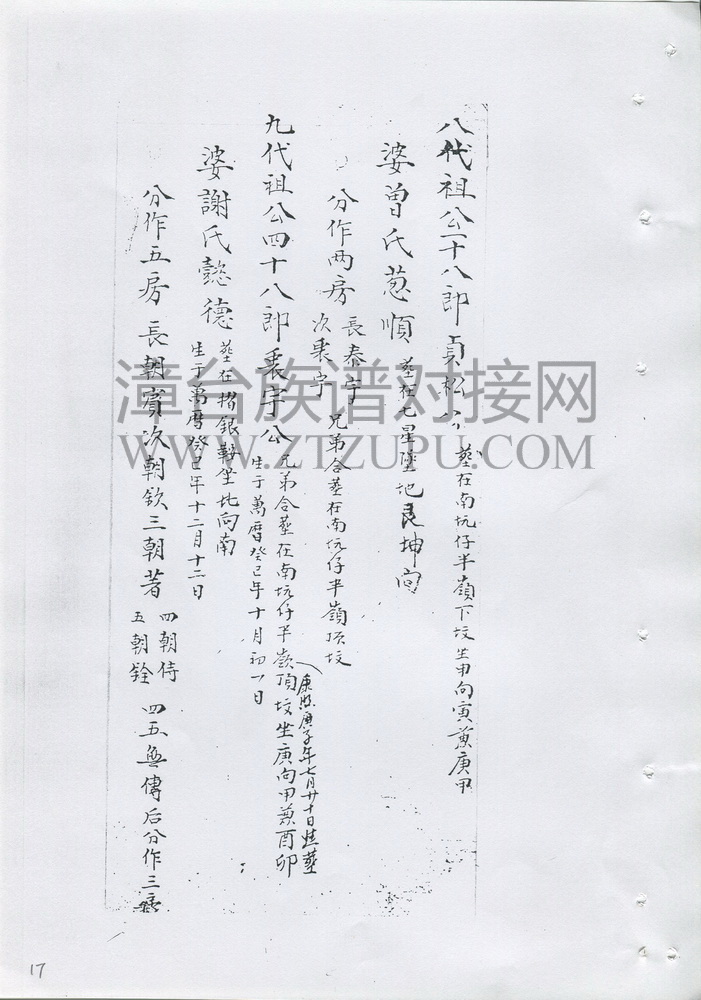 八代祖公二十八郎貞松公 葬在南坑仔半嶺下坟坐申向寅兼庚甲
婆曾氏葱順 葬在七星墜地艮坤向
分作两房 長泰宇 次秉宇 兄弟合葬在南坑仔半嶺頂坟
九代祖公四十八郎秉宇公 兄弟合葬在南坑仔半嶺頂坟坐庚向甲兼酉卯
康熙庚子年七月廿十日進葬
生于萬曆癸巳年十月初一日
婆謝氏懿德 葬在摺銀鞍坐北向南
生于萬曆癸巳年十二月十二日
分作五房 長朝賓次朝欽三朝著 四朝侍 五朝銓 四五無傳后分作三房
17
漳台族谱对接网
WWW.ZTZUPU.COM